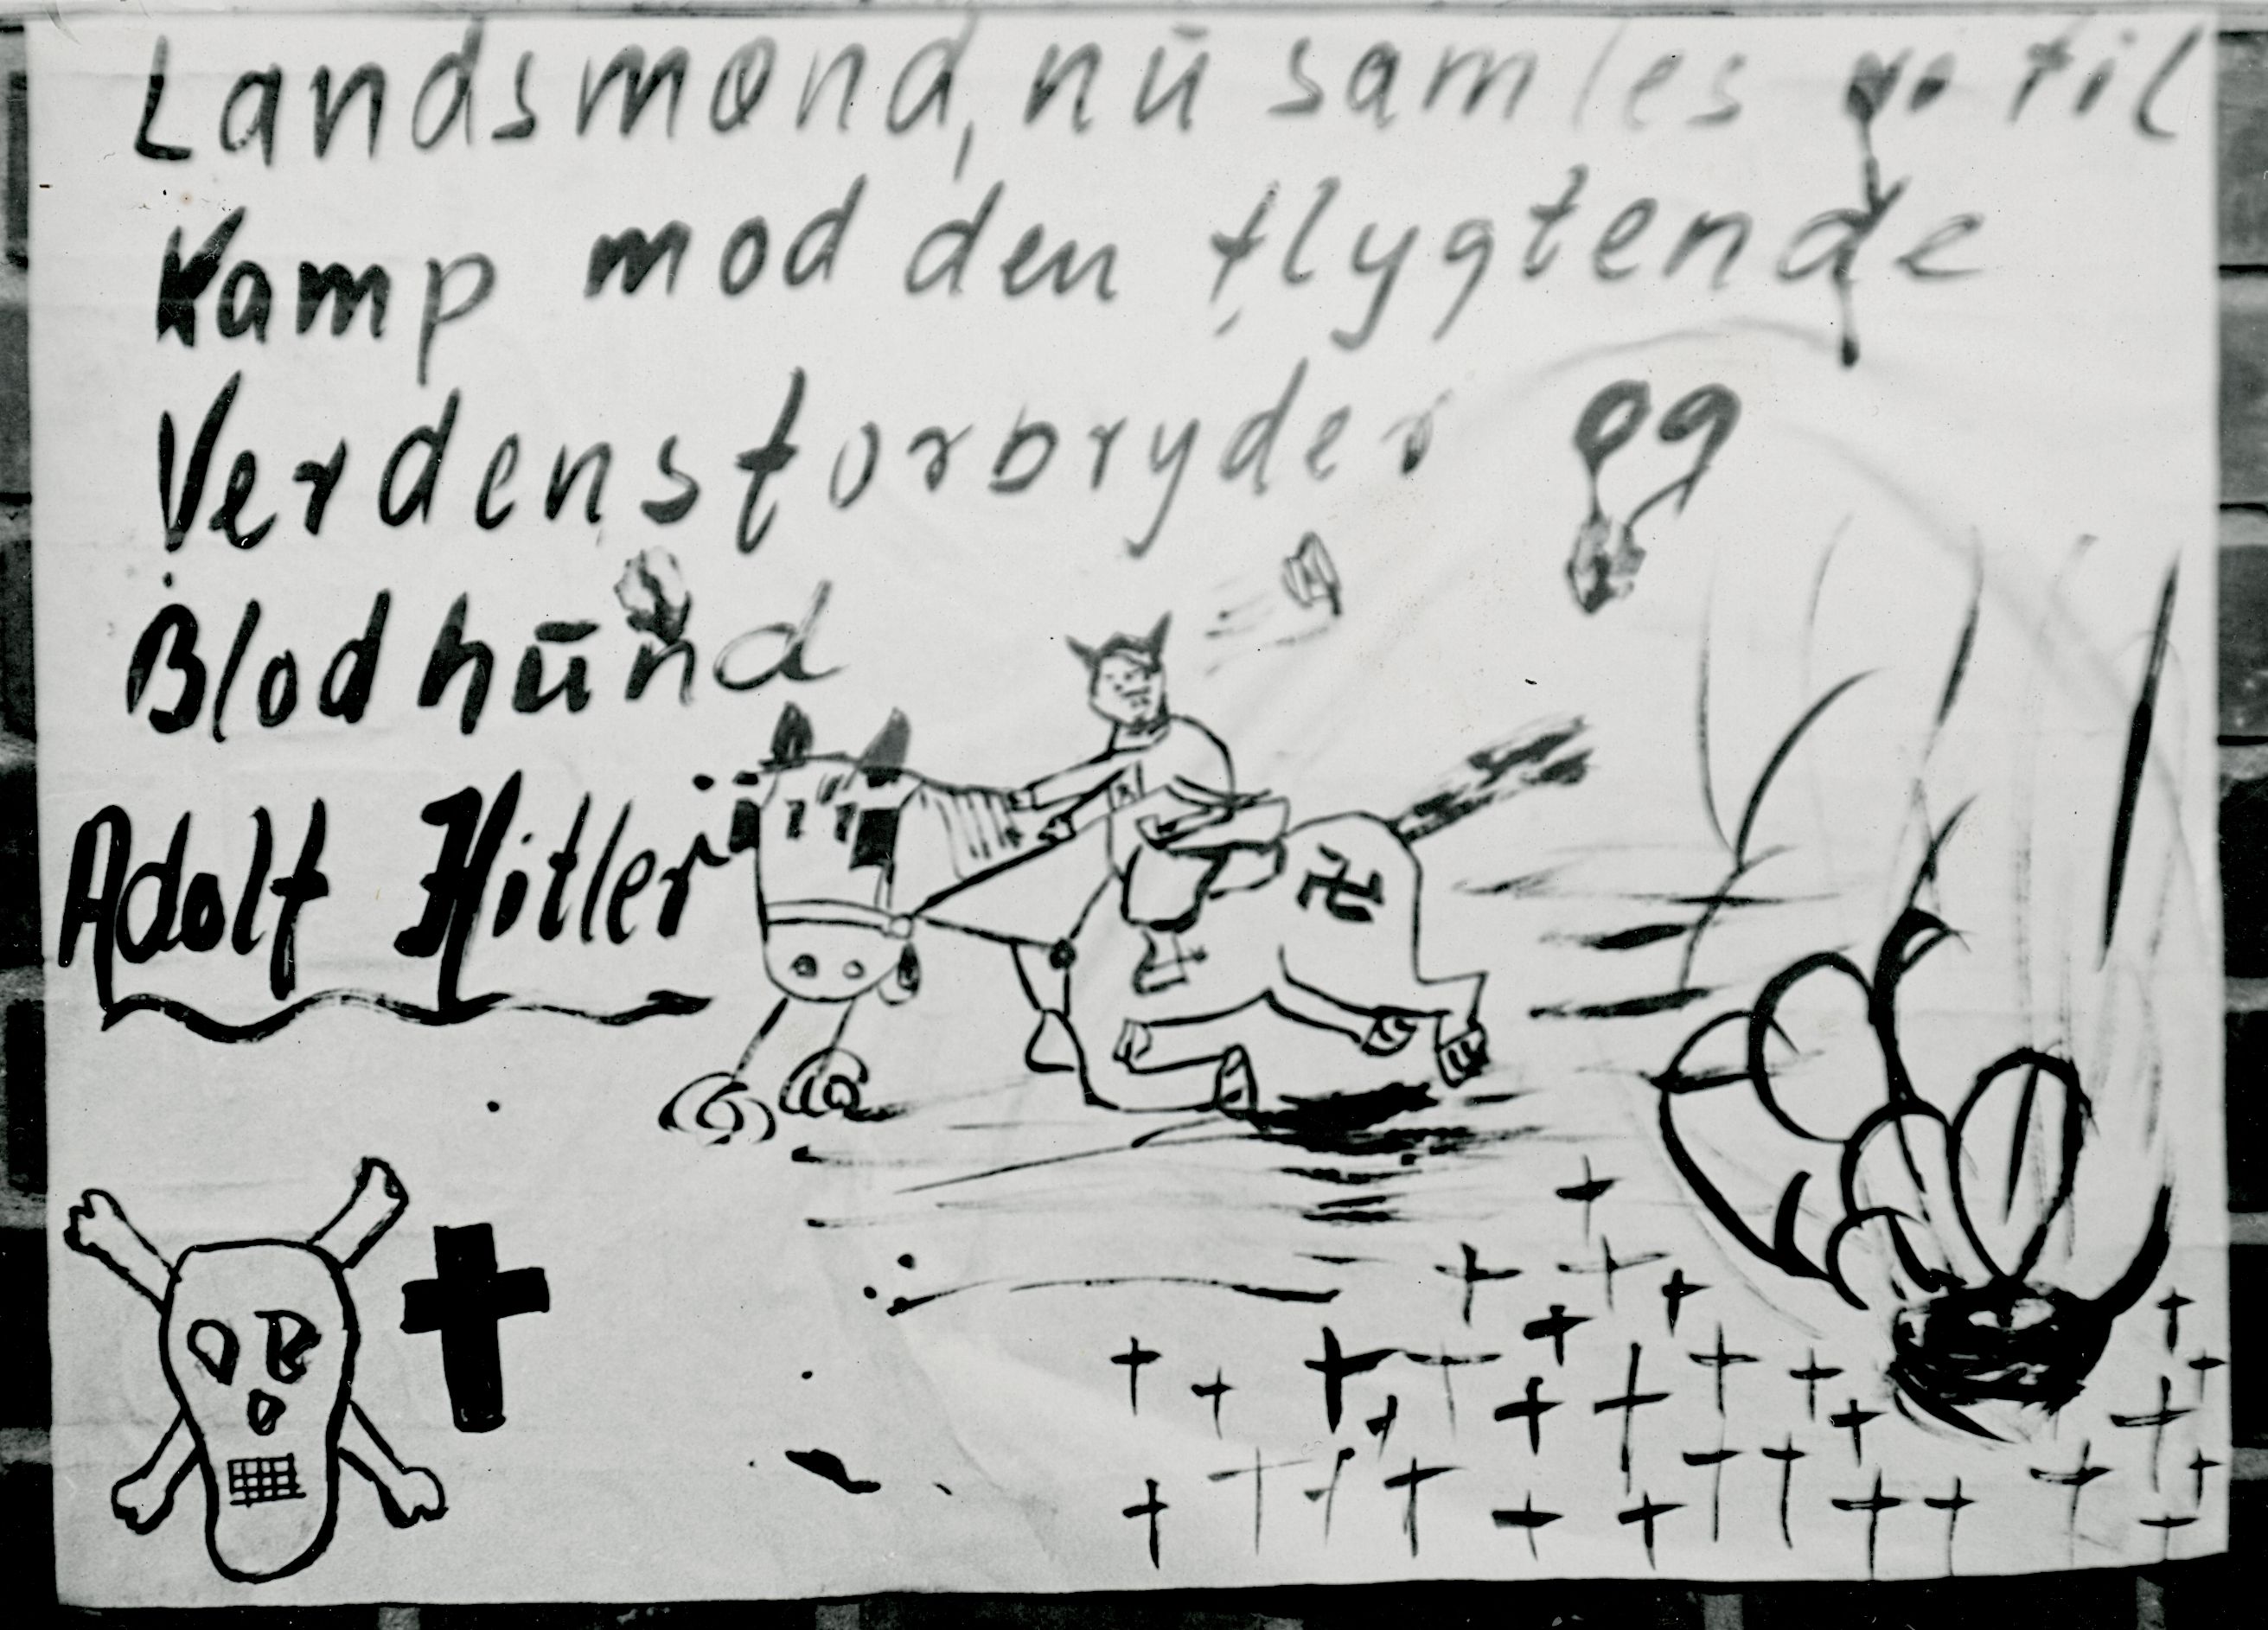 Landsmønd, nū samles vi til
Kamp mod den flygtende
Verdensforbryder og
Blodhūnd
Adolf Hitler